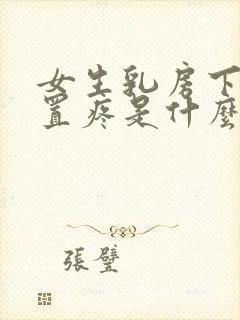 女生乳房下
置疼是什麼
張璧